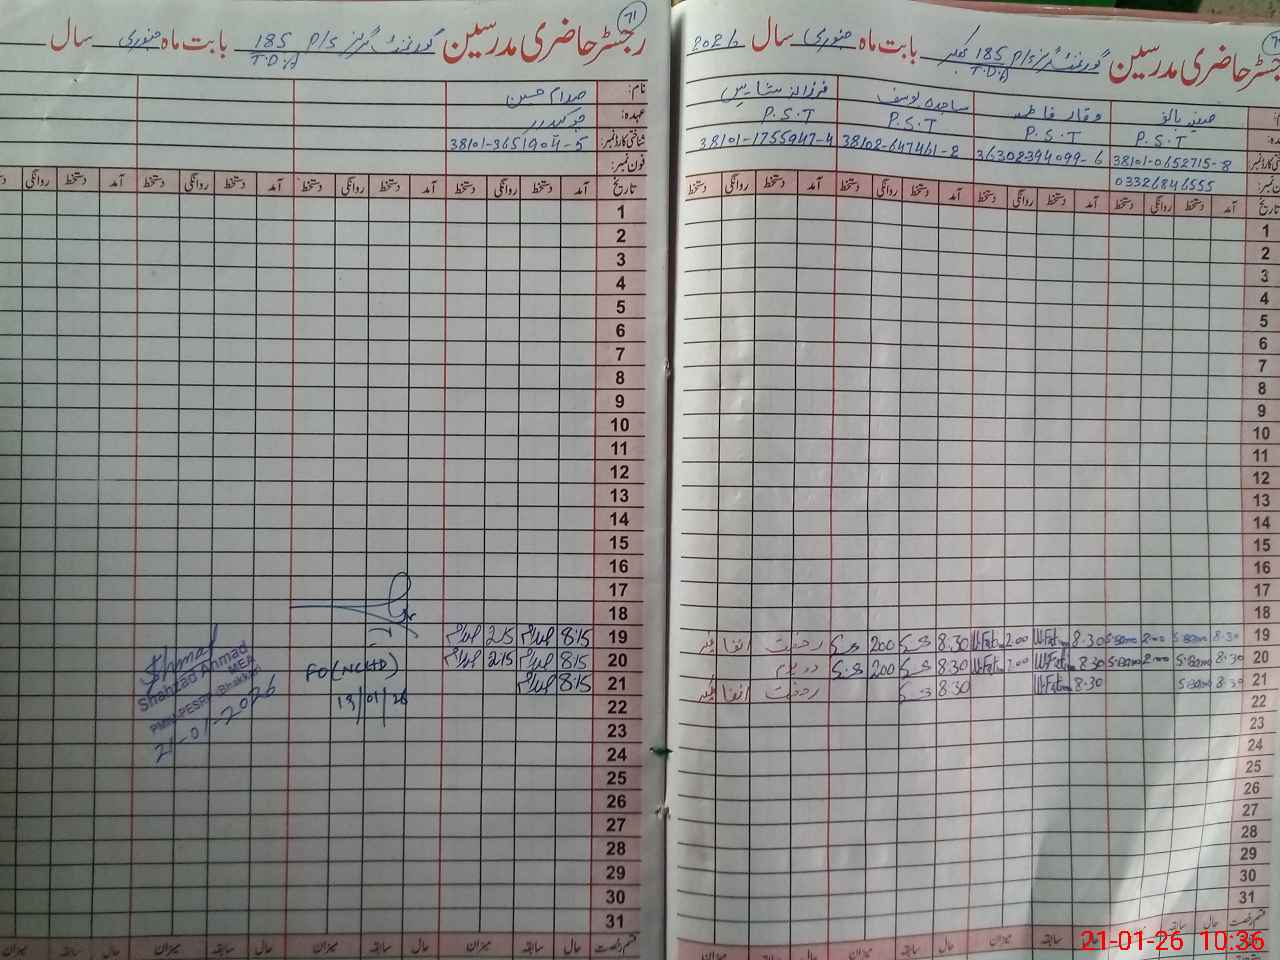 رجسٹر حاضری مدرسین گورنمنٹ گرلز P/S 185 T.D.A بابت ماہ جنوری سال
71
نام: صدام حسین
عہدہ: چوکیدار
شناختی کارڈ نمبر: 38101-3651904-5
فون نمبر:
تاریخ آمد دستخط روانگی دستخط آمد دستخط روانگی دستخط آمد دستخط روانگی دستخط آمد دستخط روانگی
1
2
3
4
5
6
7
8
9
10
11
12
13
14
15
16
17
18
19 8:15 2:15
20 8:15 2:15
21 8:15
22
23
24
25
26
27
28
29
30
31
قسم رخصت حال سابقہ میزان حال سابقہ میزان حال سابقہ میزان حال سابقہ میزان
FO (NCHD)
19/01/26
Shahzad Ahmad
MEA
PMIU-PESRP (Bhakkar)
21-01-2026
رجسٹر حاضری مدرسین گورنمنٹ گرلز P/S 185 T.D.A بھکر بابت ماہ جنوری سال 2026
وقار فاطمہ ساجدہ یوسف فرزانہ
P.S.T P.S.T P.S.T P.S.T
38101-0652715-8 36302394099-6 38102-647461-2 38101-1755947-4
03326846555
تاریخ آمد دستخط روانگی دستخط آمد دستخط روانگی دستخط آمد دستخط روانگی دستخط آمد دستخط روانگی دستخط
1
2
3
4
5
6
7
8
9
10
11
12
13
14
15
16
17
18
19 8:30 S.Bano 2:00 S.Bano 8:30 W.Fatima 2:00 W.Fatima 8:30 2:00 رخصت اتفاقیہ
20 8:30 S.Bano 2:00 S.Bano 8:30 W.Fatima 2:00 W.Fatima 8:30 2:00
21 8:30 S.Bano 8:30 W.Fatima 8:30 رخصت اتفاقیہ
22
23
24
25
26
27
28
29
30
31
قسم رخصت حال سابقہ میزان حال سابقہ میزان حال سابقہ میزان
21-01-26 10:36